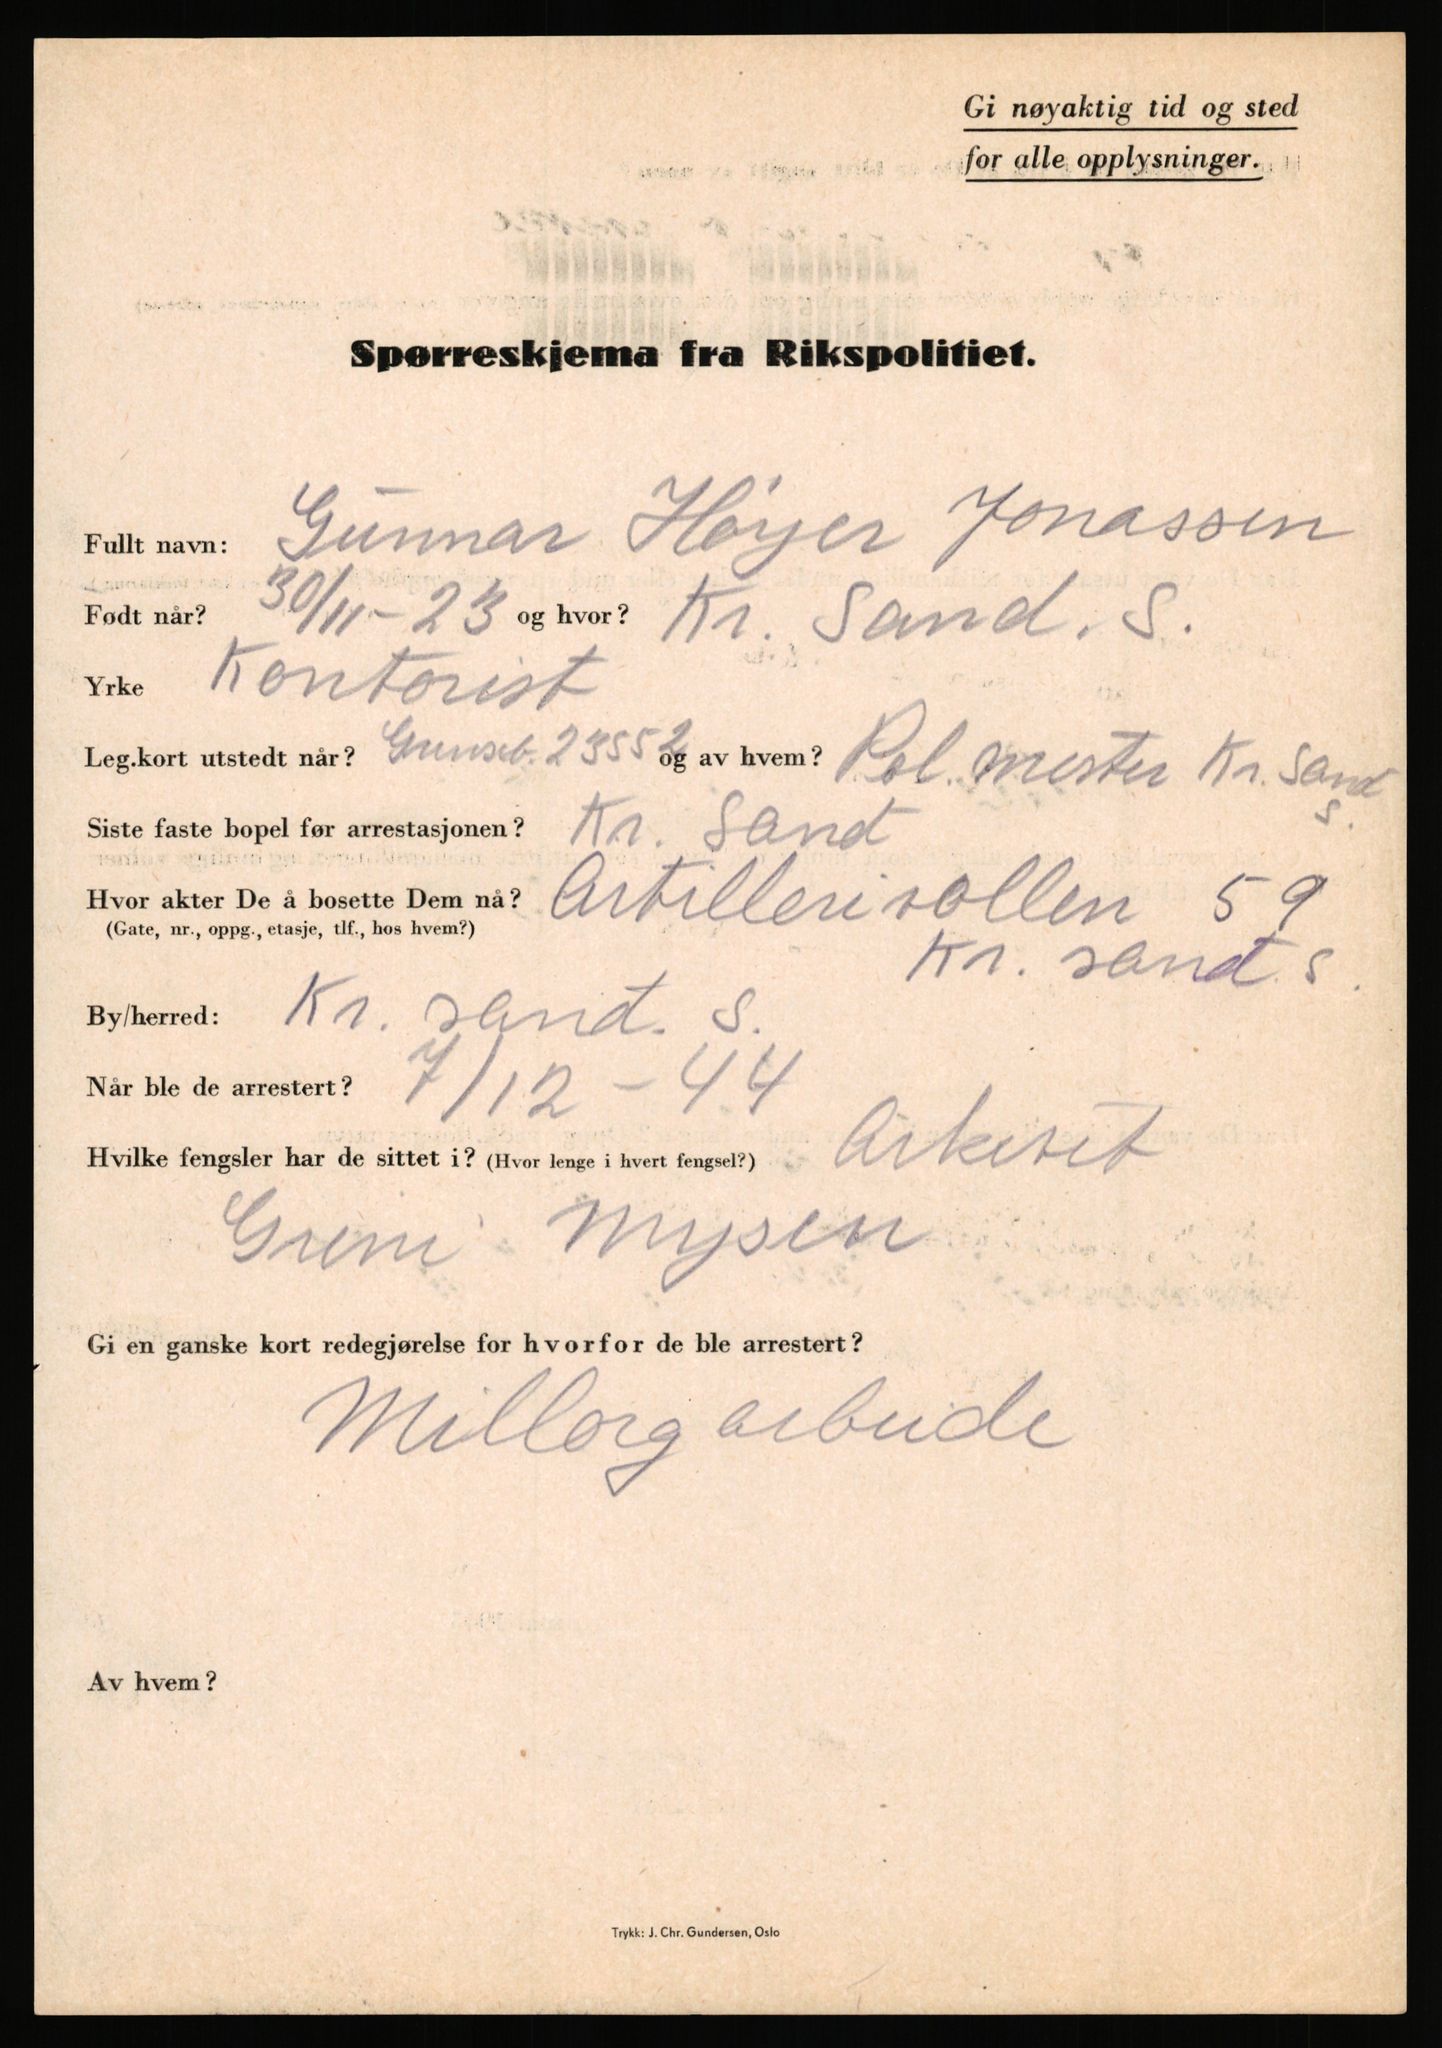 Gi nøyaktig tid og sted
for alle opplysninger.
Spørreskjema fra Rikspolitiet.
Fullt navn: Gunnar Höyer Jonassen
Født når? 30/11-23 og hvor? Kr. Sand. S.
Yrke Kontorist
Leg.kort utstedt når? Grenseb. 23552 og av hvem? Pol. mester Kr. Sand
S.
Siste faste bopel før arrestasjonen? Kr. Sand
Hvor akter De å bosette Dem nå? Artillerivollen 59
(Gate, nr., oppg., etasje, tlf., hos hvem?) Kr. sand s.
By/herred: Kr. sand. S.
Når ble de arrestert? 7/12-44
Hvilke fengsler har de sittet i? (Hvor lenge i hvert fengsel?) Arkivet
Grini Mysen
Gi en ganske kort redegjørelse for hvorfor de ble arrestert?
Millorg arbeide
Av hvem?
Trykk: J. Chr. Gundersen, Oslo